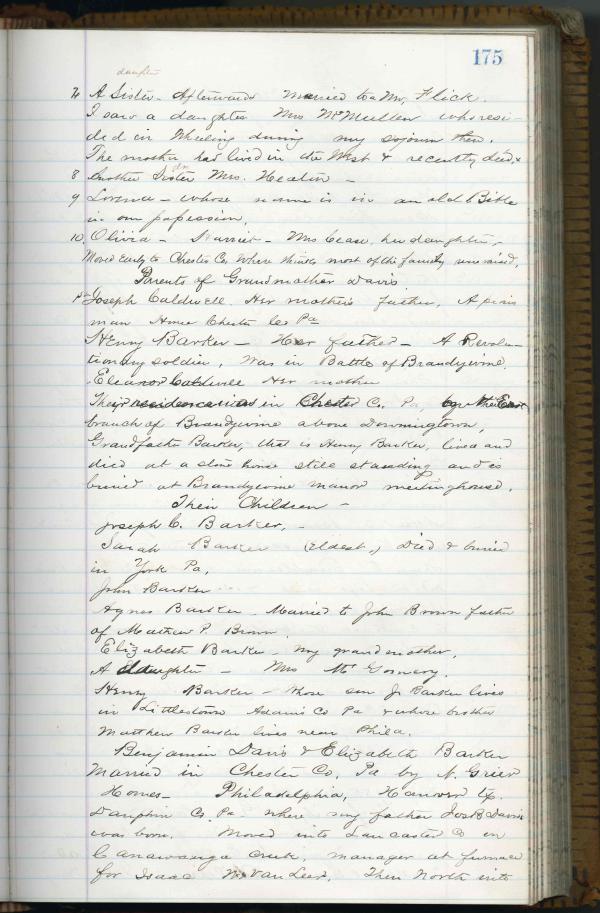 175
daughter
7 A Sister - Afterwards Married to a Mr. Flick.
I saw a daughter Mrs McMullen who resi-
ded in Wheeling during my sojourn there.
The mother had lived in the West & recently died.
8 Another Sister Mrs. Heaton -
9 Lorena - whose name is in an old Bible
in our possession.
10 Olivia - Married - Mrs Cease, her daughter,
Moved Early to Chester Co. Where thinks most of the family were raised.
Parents of Grandmother Davis
Joseph Caldwell. Her mother's father, A pious
man Home Chester Co Pa
Henry Barker - Her father - A Revolu-
tionary soldier, Was in Battle of Brandywine.
Eleanor Caldwell Her mother
Their residence was in Chester Co. Pa, by the East
branch of Brandywine above Downingtown,
Grandfather Barker, that is Henry Barker, lived and
died at a stone house still standing and is
buried at Brandywine manor meetinghouse.
Their Children -
Joseph C. Barker, -
Sarah Barker (Eldest.) Died & buried
in York Pa.
John Barker
Agnes Barker - Married to John Brown father
of Matthew P. Brown.
Elizabeth Barker - my grandmother,
A daughter - Mrs McGomery.
Henry Barker - whose son J. Barker lives
in Littlestown Adams Co Pa & whose brother
Matthew Barker lives near Phila.
Benjamin Davis & Elizabeth Barker
Married in Chester Co, Pa by N. Grier
Homes - Philadelphia, Hanover tp.
Dauphin Co. Pa where my father Jos B Davis
was born. Moved into Lancaster Co on
Canawauga Creek, manager at furnace
for Isaac Van Leer. Then North into